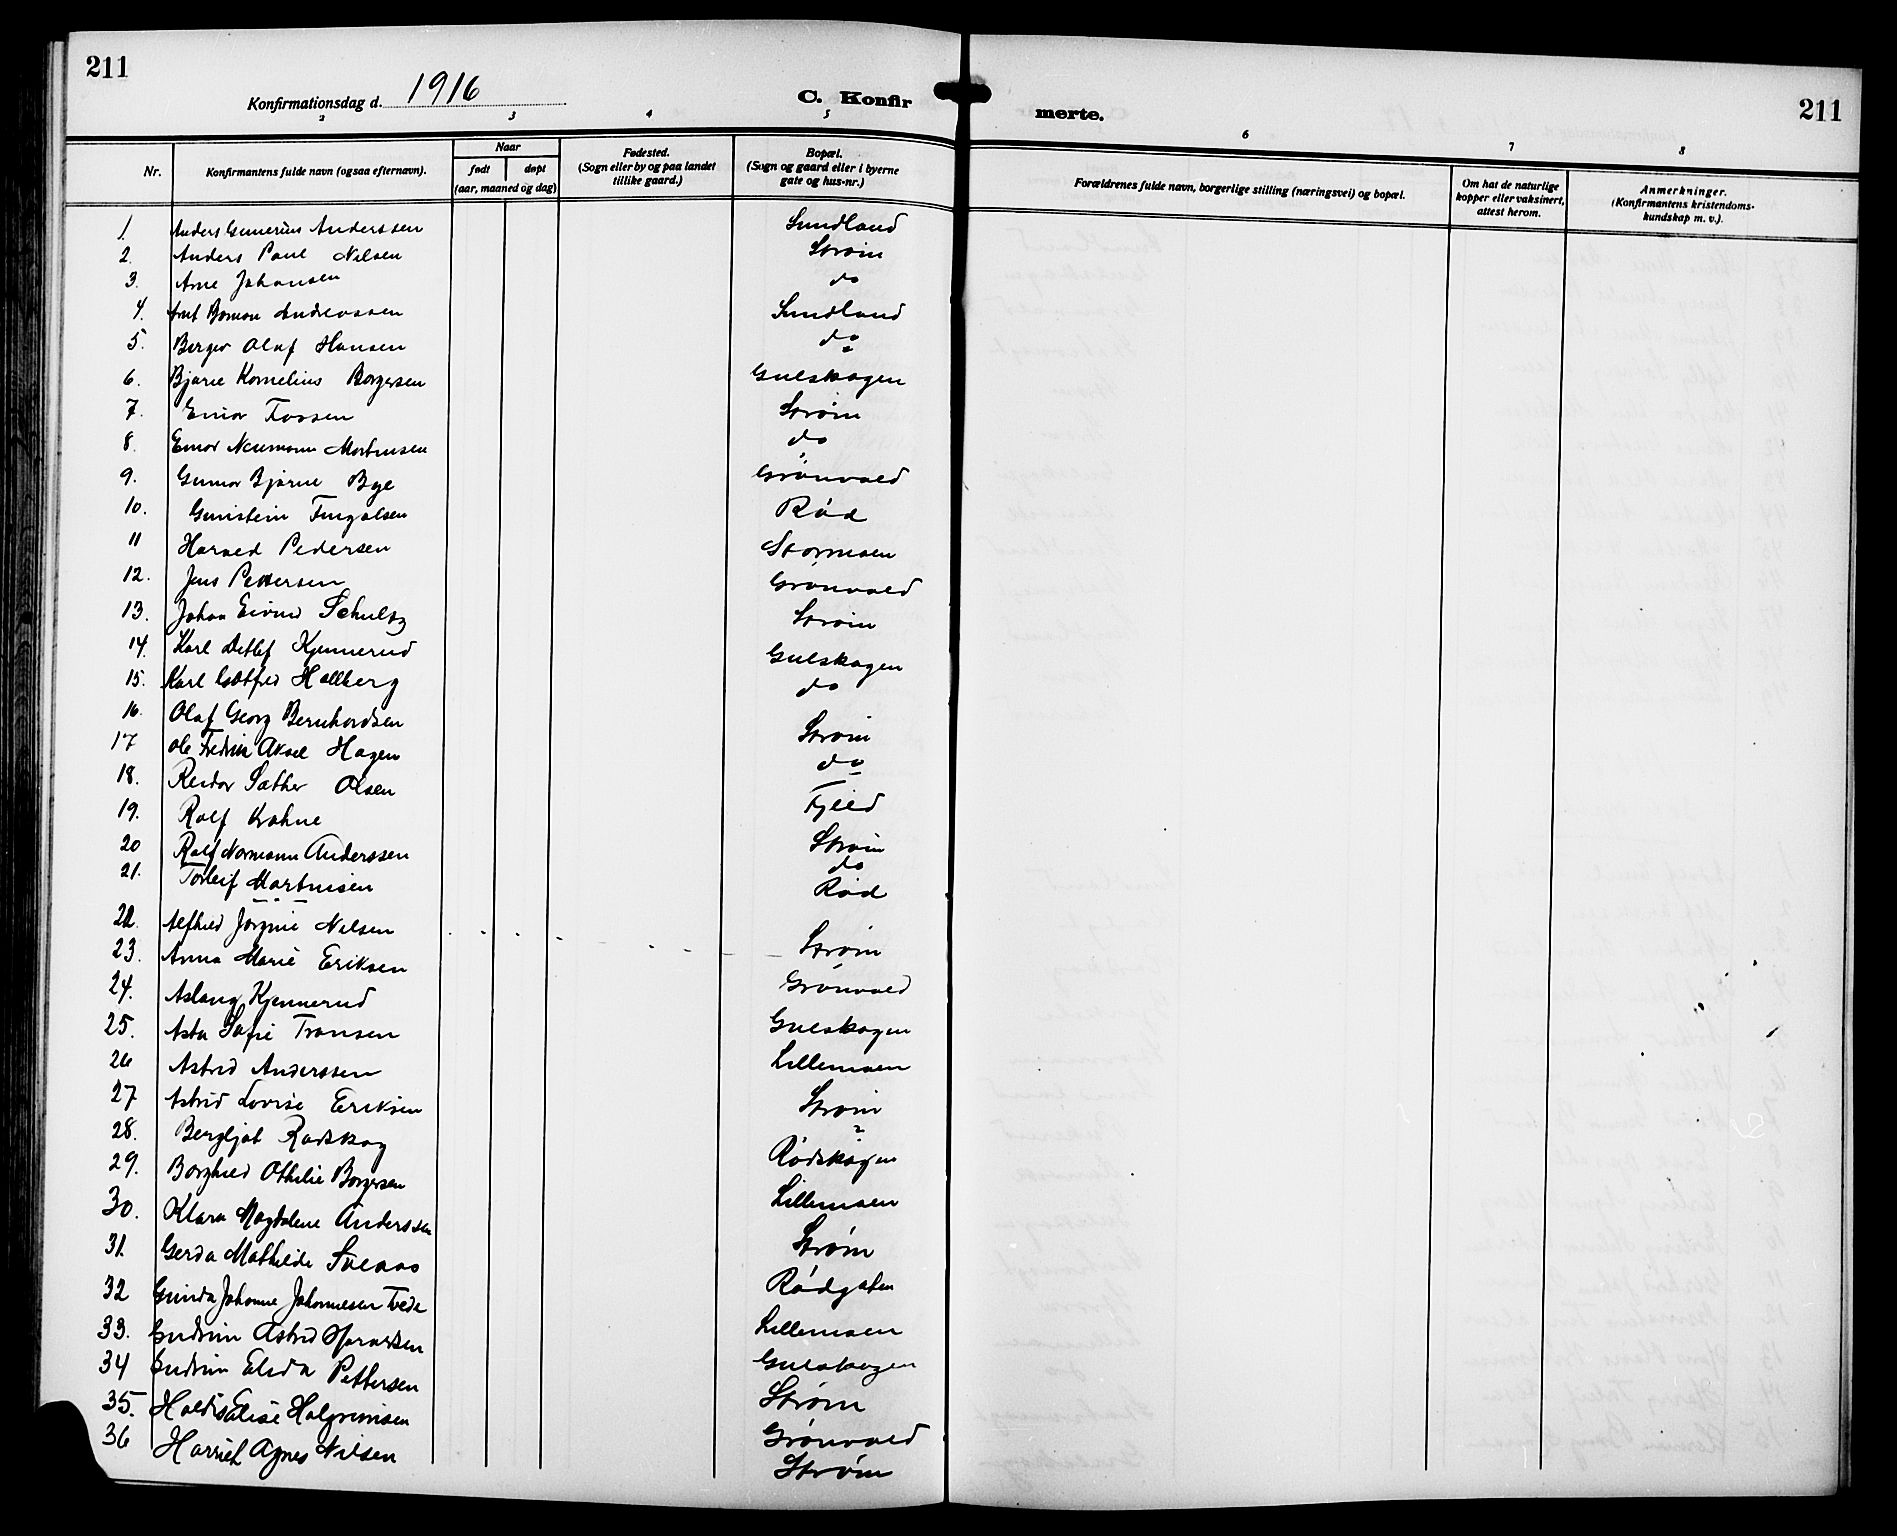 211
Konfirmationsdag d. 1916
C. Konfir
merte.
211
2
3
4
5
6
7
8
Nr.
Konfirmantens fulde navn (ogsaa efternavn).
Naar
født
døpt
(aar, maaned og dag)
Fødested.
(Sogn eller by og paa landet
tillike gaard.)
Bopæl.
(Sogn og gaard eller i byerne
gate og hus-nr.)
Forældrenes fulde navn, borgerlige stilling (næringsvei) og bopæl.
Om hat de naturlige
kopper eller vaksinert,
attest herom.
Anmerkninger.
(Konfirmantens kristendoms-
kundskap m. v.).
1. Anders Gunerius Anderssen Sundland
2. Anders Paul Nilsen Strøm
3. Arne Johansen do
4. Andreassen Sundland
5. Berger Olaf Hansen do
6. Bjarne Kornelius Borgersen Gulskogen
7. Einar Fossen Strøm
8. Einar Neumann Martinsen do
9. Gunnar Bjarne Bye Grønvold
10. Gunstein Fingalsen Rød
11 Harald Pedersen Stormoen
12. Jens Pettersen Grønvold
13. Johan Eivind Schultz Strøm
14. Karl Detlef Kjennerud Gulskogen
15. Karl Gotfred Hallberg do
16. Olaf Georg Bernhardsen Strøm
17 Ole Fredrik Aksel Hagen do
18. Reidar Sæther Olsen Fjeld
19. Rolf Krahne Strøm
20 Rolf Normann Anderssen do
21. Torleif Martinsen Rød
22. Alfhild Jørgine Nilsen Strøm
23. Anna Marie Eriksen Grønvold
24. Aslaug Kjennerud Gulskogen
25. Asta Sofie Transen Lillemoen
26 Astrid Anderssen Strøm
27 Astrid Lovise Eriksen
28. Bergljot Rødskog Rødskogen
29. Borghild Othilie Borgersen Lillemoen
30. Klara Magdalene Anderssen Strøm
31. Gerda Mathilde Sveaas Rødgaten
32 Gunda Johanne Johannesen Tvede Lillemoen
33. Gudrun Astrid Gulskogen
34 Gudrun Elida Pettersen Strøm
35. Haldis Elise Halgrimsen Grønvold
36 Harriet Agnes Nilsen Strøm